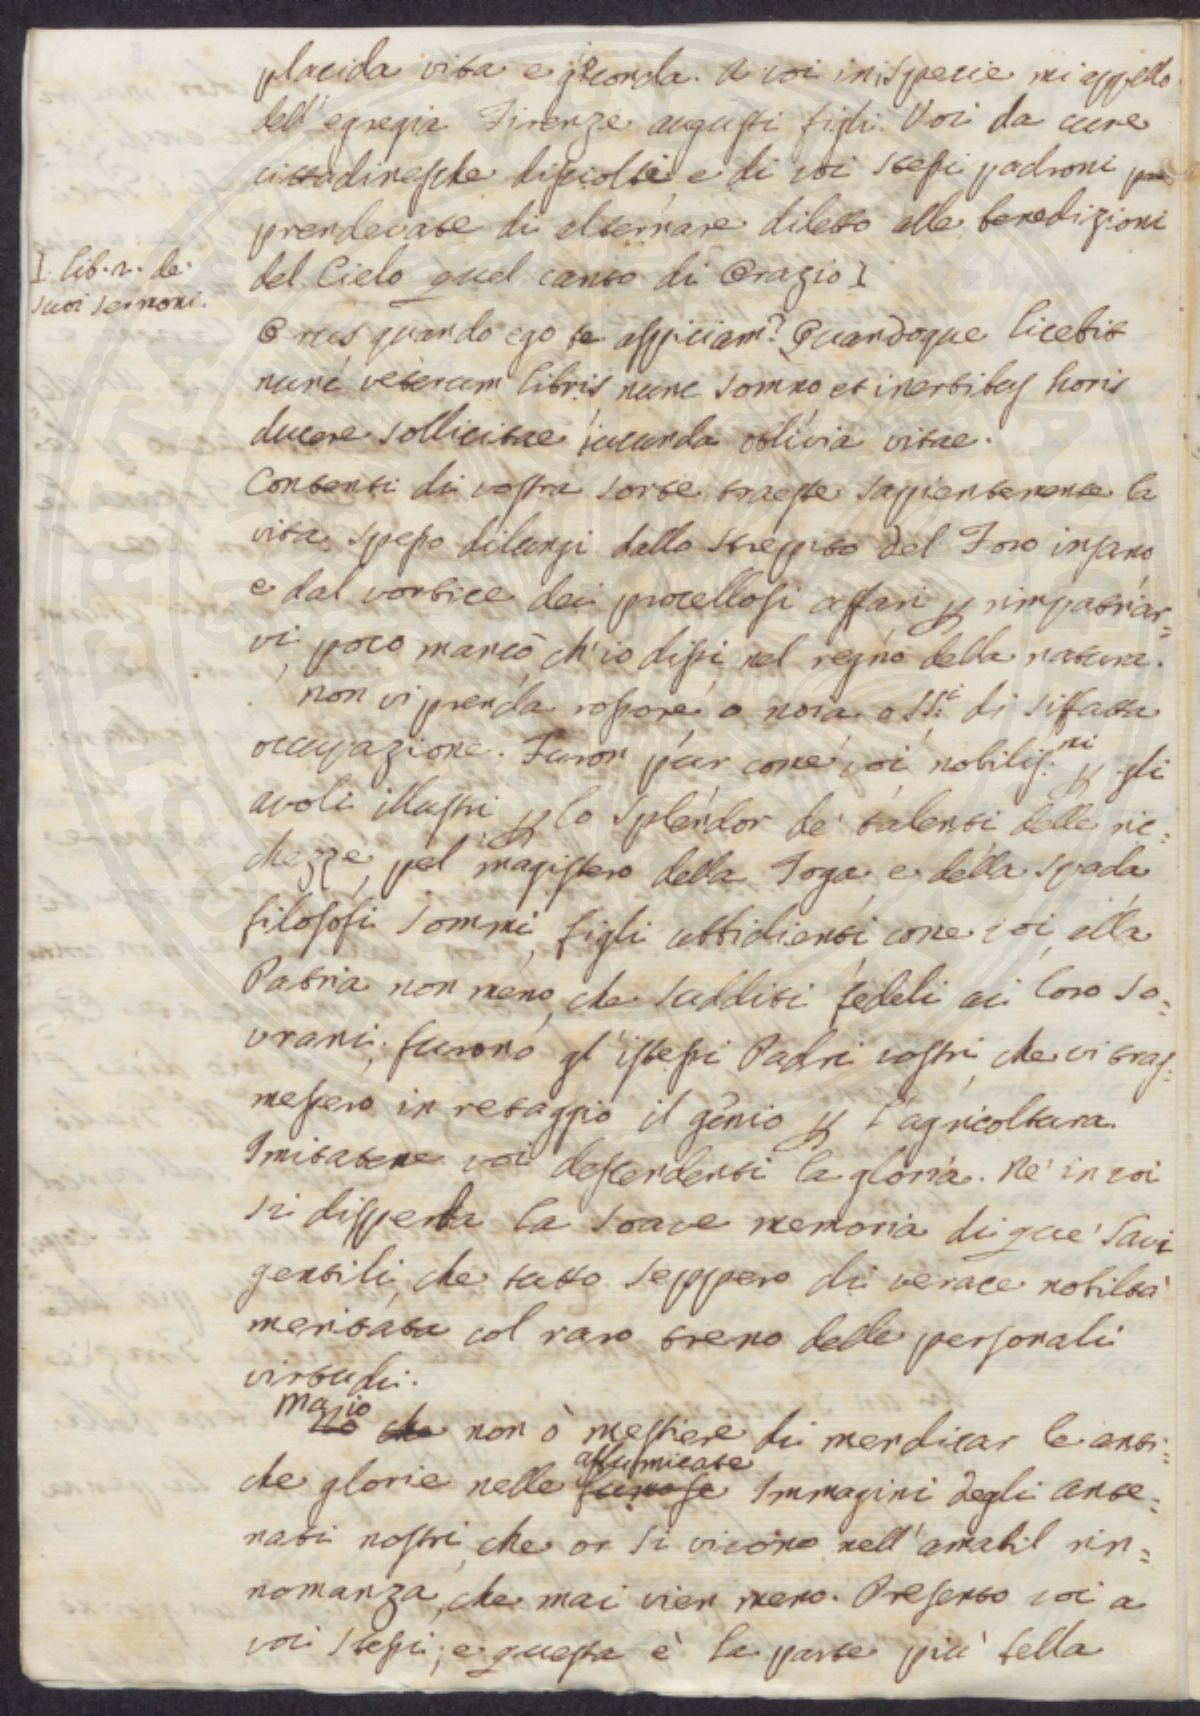 placida vita e gioconda. A voi inispecie mi appello
dell'egregia Firenze augusti figli. Voi da cure
cittadinesche disciolti e di voi stessi padroni
prendevate di alternare diletto alle benedizioni
I. lib. 2. de'
suoi sermoni.
del Cielo quel canto di Orazio I
O rus quando ego te aspiciam? Quandoque licebit
nunc veterum libris nunc somno et inertibus horis
ducere sollicitae iucunda oblivia vitae.
Contenti di vostra sorte traeste sapientemente la
vita spesso dilungi dallo strepito del Foro insano
e dal vortice dei procellosi affari p rimpatriar=
vi, poco mancò ch'io dissi, nel regno della natura.
non vi prenda rossore o noia o SS.i di siffatta
occupazione. Furon pur come voi nobilis.mi p gli
avoli illustri p lo splendor de' talenti delle ric=
chezze, pel magistero della Toga e della spada
filosofi sommi, figli ubbidienti come voi alla
Patria non meno, che sudditi fedeli ai loro so=
vrani; furono gl'istessi Padri vostri, che vi tras=
messero in retaggio il genio p l'agricoltura.
Imitatene voi descendenti la gloria. Nè in voi
si disperda la soave memoria di que' savi
gentili, che tutto seppero di verace nobiltà
meritata col raro treno delle personali
virtudi.
Ma io
no che non ò mestiere di mendicar le anti=
affumicate
che glorie nelle fumose Immagini degli ante=
nati nostri, che or si vivono nell'amabil rin=
nomanza, che mai vien meno. Presento voi a
voi stessi; e questa è la parte più bella